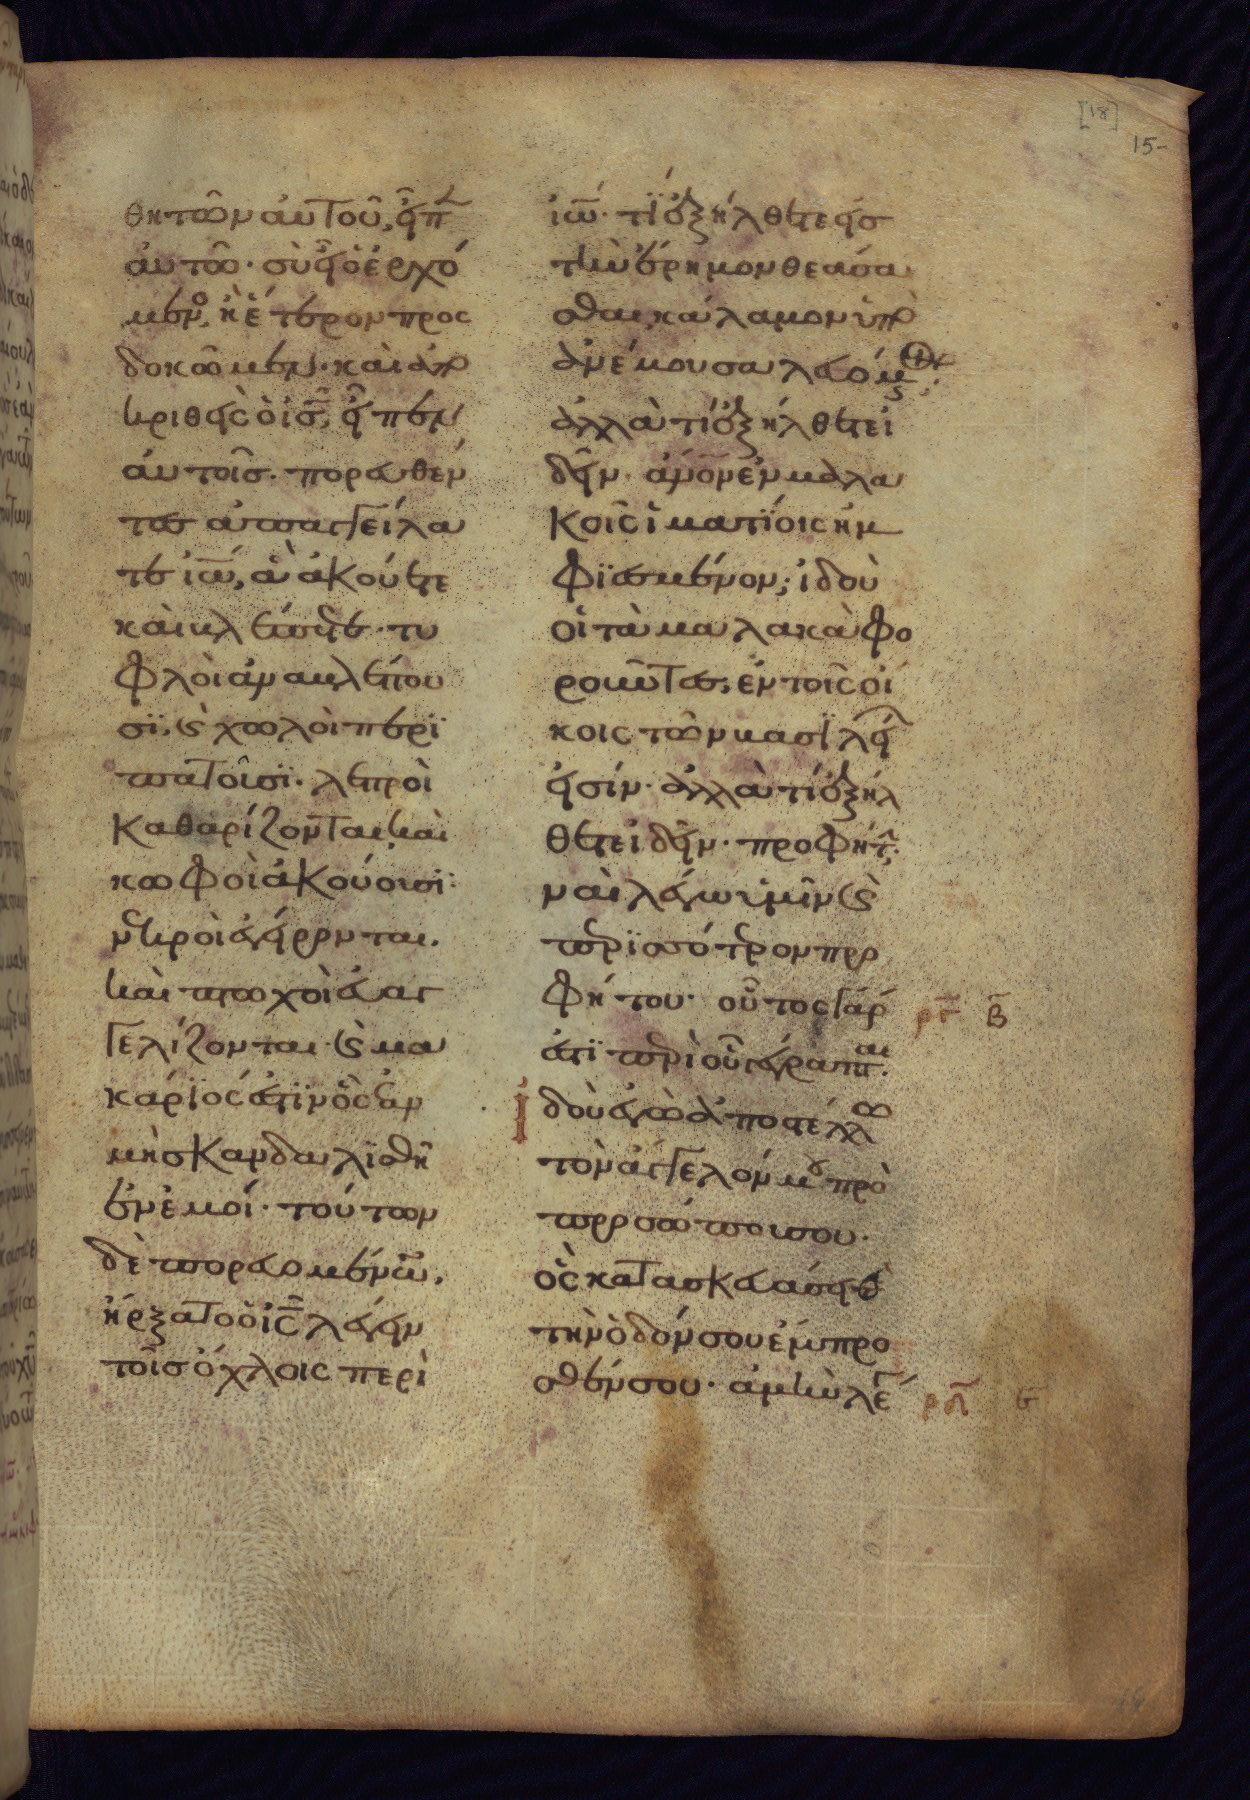 [18]
15-
θητῶν αὐτοῦ, εἶπ
αὐτῶ· σὺ εἶ ὁ ἐρχό
μεν̊, ἢ ἕτερον προς
δοκῶμεν· καὶ ἀπο
κριθεὶς ὁ ις̅, εἶπεν
αὐτοῖσ· πορευθέν
τεσ ἀπαγγείλα
τε ἰω̅, ἃ ἀκούετε
καὶ βλέπετε· τυ
φλοὶ ἀναβλέπου
σϊ, καὶ χωλοὶ περϊ
πατοῦσϊ· λεπροὶ
καθαρίζονται, καὶ
κωφοὶ ἀκούουσϊ·
νεκροὶ ἐγείρονται.
καὶ πτωχοὶ εὐαγ
γελίζονται· καὶ μα
κάρϊός ἐστϊν ὃς ἐὰν
μὴ σκανδαλϊσθῆ
ἐν ἐμοί· τούτων
δὲ πορευομένων.
ἤρξατο ὁ ις̅ λέγειν
τοῖσ ὄχλοις περὶ
ἰω̅· τί ἐξήλθετε εἰσ
τὴν ἔρημον θεάσα
σθαι, κάλαμον ὑπὸ
ἀνέμου σαλευόμ
ἀλλὰ τί ἐξήλθετε ἰ
δεῖν· ἄνον̅ ἐν μαλα
κοῖς ἱματίοις ἠμ
φϊεσμένον; ἰδοὺ
οἱ τὰ μαλακὰ φο
ροῦντεσ, ἐν τοῖς οἴ
κοις τῶν βασιλεί
εἰσίν· ἀλλὰ τί ἐξήλ
θετε ἰδεῖν· προφήτ̅;
ναὶ λέγω ὑμῖν καὶ
περϊσσότερον προ
φήτου· οὗτος γάρ
ἐστϊ περὶ οὗ γέγραπται.
ἰδοὺ ἐγὼ ἀποστέλλω
τὸν ἄγγελόν μου πρὸ
προσώπου σου·
ὃς κατασκευάσει
τὴν ὁδόν σου ἔμπρο
σθέν σου· ἀμὴν λέ
ργ̅ β̅
ρδ̅ ε̅